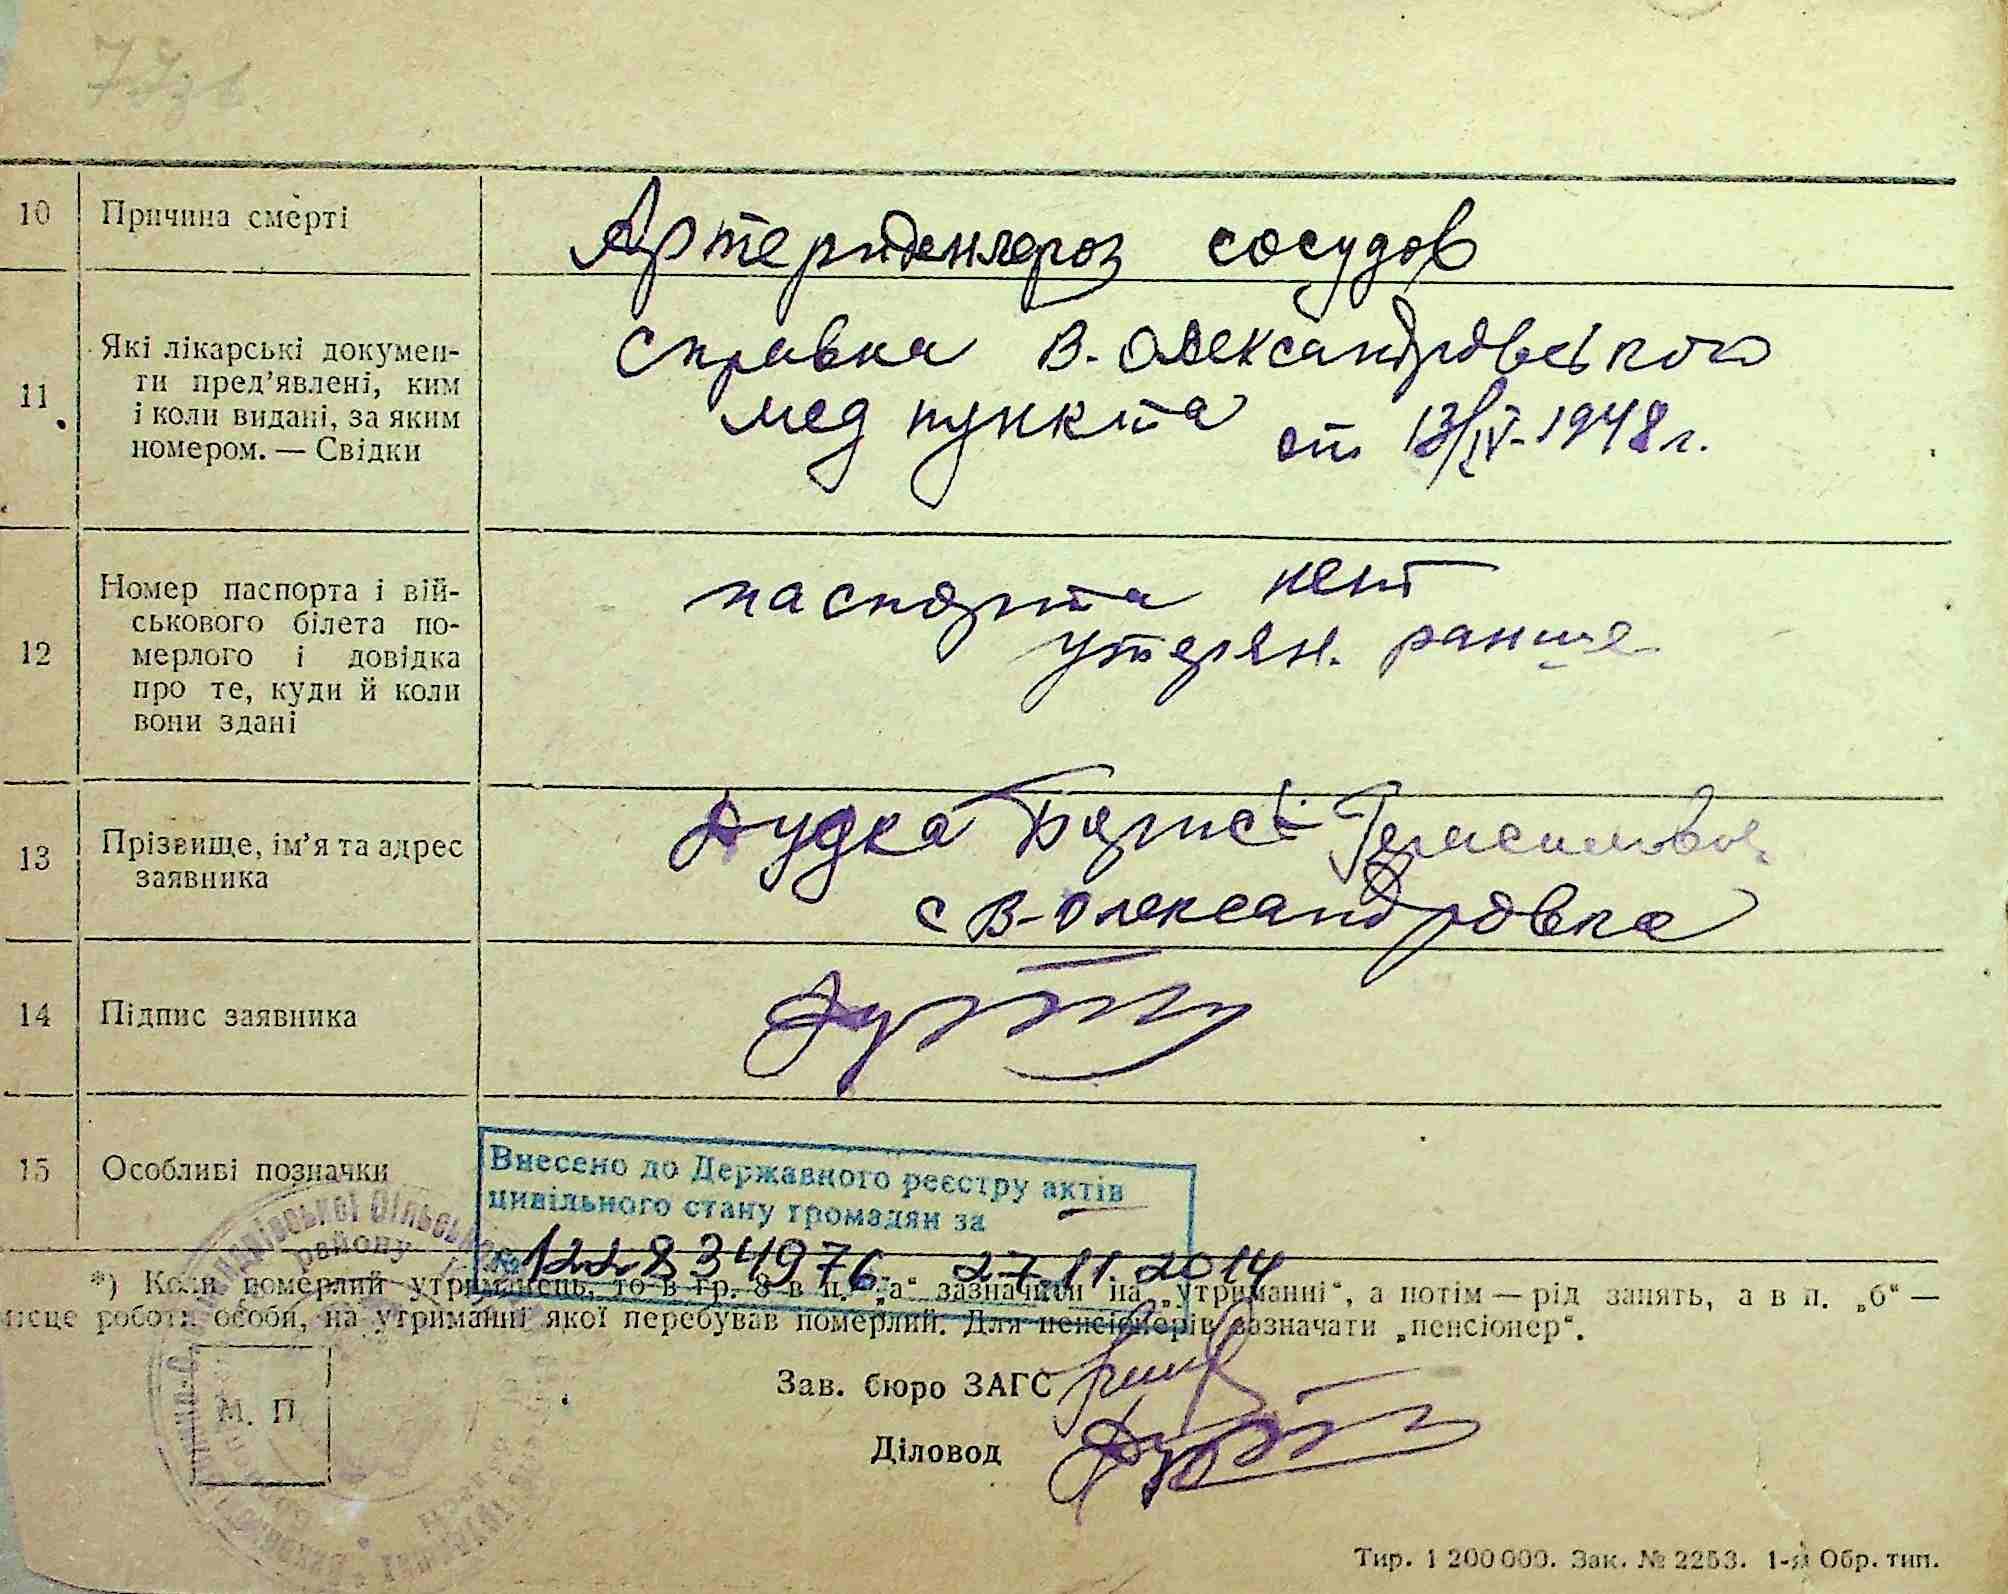 10 Причина смерті
Артериосклероз сосудов
11 Які лікарські докумен-
ти пред’явлені, ким
і коли видані, за яким
номером. — Свідки
справка В-Олександровского
мед пункта от 13/IV-1948 г.
12 Номер паспорта і вій-
ськового білета по-
мерлого і довідка
про те, куди й коли
вони здані
паспорта нет
утерян. раньше
13 Прізвище, ім’я та адрес
заявника
Дудка Борис Герасимович
с В-Олександровка
14 Підпис заявника
15 Особливі позначки
Внесено до Державного реєстру актів
цивільного стану громадян за
№ 122834976 27 11 2014
*) Коли померлий утриманець, то в гр. 8 в п. „а“ зазначити на „утриманні“, а потім — рід занять, а в п. „б“ —
місце роботи особи, на утриманні якої перебував померлий. Для пенсіонерів зазначати „пенсіонер“.
Зав. бюро ЗАГС
Діловод
М. П
району
Тир. 1 200 000. Зак. № 2253. 1-я Обр. тип.